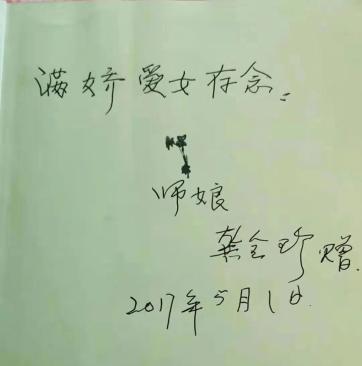 满娇爱女存念:
师娘
龚全珍赠.
2017年5月1日.